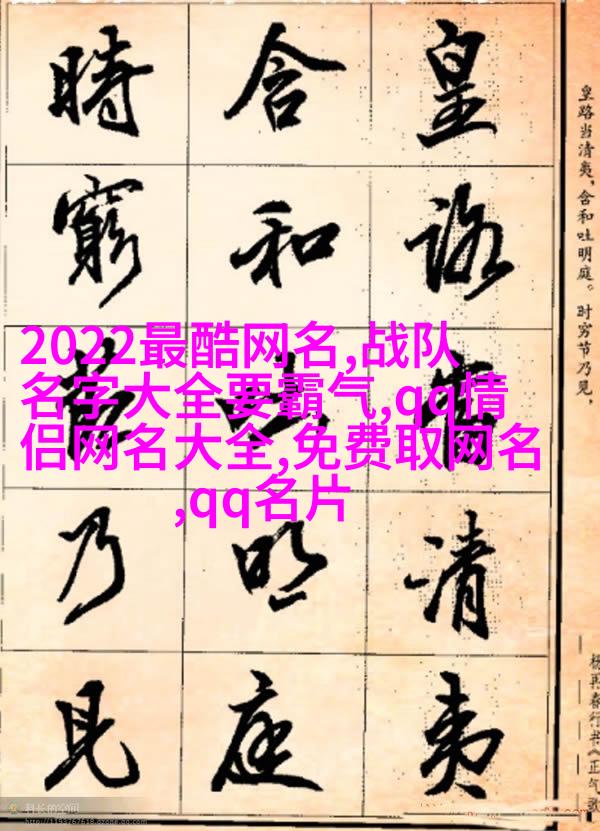 2022最酷网名,战队
名字大全要霸气,qq情
侣网名大全,免费取网名
,qq名片
皇路當清夷
含和吐明庭
時窮節乃見
皇路当清夷,含和吐明庭。时穷节乃见,
杨再春行书《正气歌
科长的空间